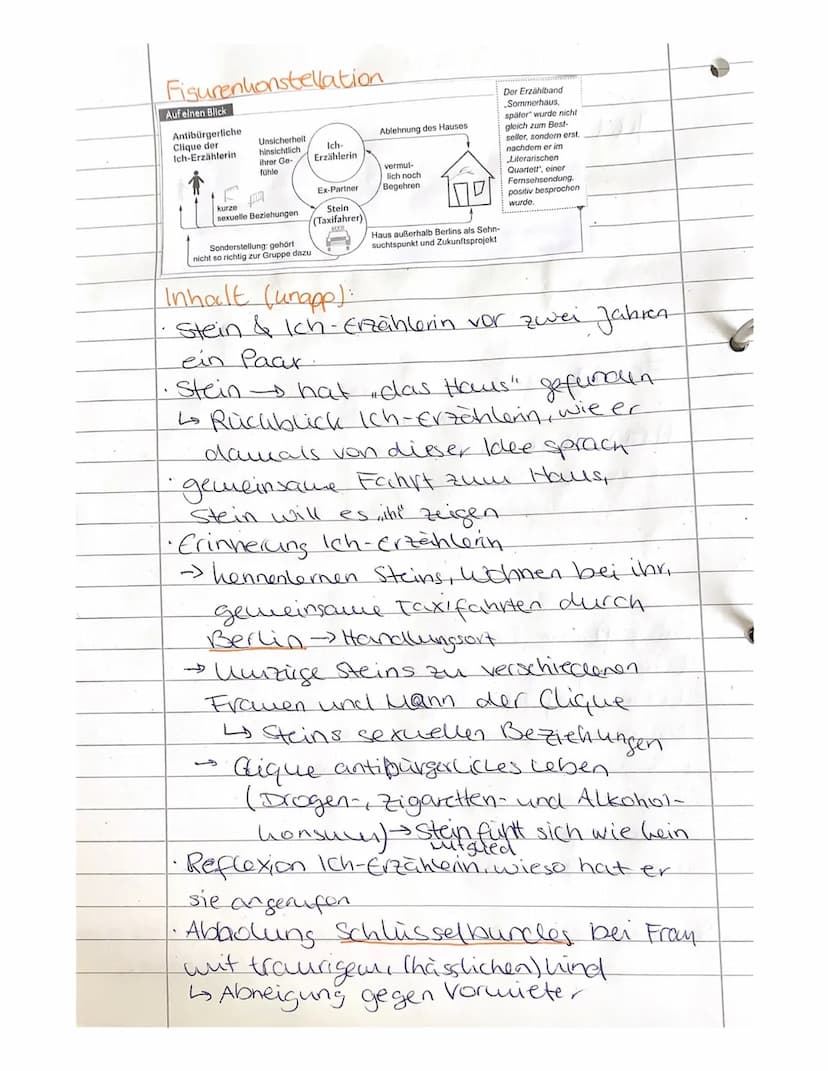 Figurenkonstellation
Auf einen Blick
Antibürgerliche
Clique der
Ich-Erzählerin
Unsicherheit
hinsichtlich
ihrer Ge-
fühle
Ich-
Erzählerin
Ablehnung des Hauses
vermut-
lich noch
Begehren
Ex-Partner
kurze
sexuelle Beziehungen
Stein
(Taxifahrer)
Sonderstellung: gehört
nicht so richtig zur Gruppe dazu
Haus außerhalb Berlins als Sehn-
suchtspunkt und Zukunftsprojekt
Der Erzählband
„Sommerhaus,
später" wurde nicht
gleich zum Best-
seller, sondern erst,
nachdem er im
„Literarischen
Quartett", einer
Fernsehsendung,
positiv besprochen
wurde.
Inhalt (knapp):
· Stein & Ich-Erzählerin vor zwei Jahren
ein Paar
· Stein → hat „das Haus" gefunden
↳ Rückblick Ich-Erzählerin, wie er
damals von dieser Idee sprach
· gemeinsame Fahrt zum Haus,
Stein will es „ihr" zeigen
· Erinnerung Ich-Erzählerin
→ kennenlernen Steins, Wohnen bei ihr,
gemeinsame Taxifahrten durch
Berlin → Handlungsort
→ Umzüge Steins zu verschiedenen
Frauen und Mann der Clique
↳ Steins sexuellen Beziehungen
→ Clique antibürgerliches Leben
(Drogen-, Zigaretten- und Alkohol-
konsum) → Stein fühlt sich wie kein
Mitglied
· Reflexion Ich-Erzählerin, wieso hat er
sie angerufen
· Abholung Schlüsselbundes bei Frau
mit traurigem, (hässlichen) Kind
↳ Abneigung gegen Vormieter